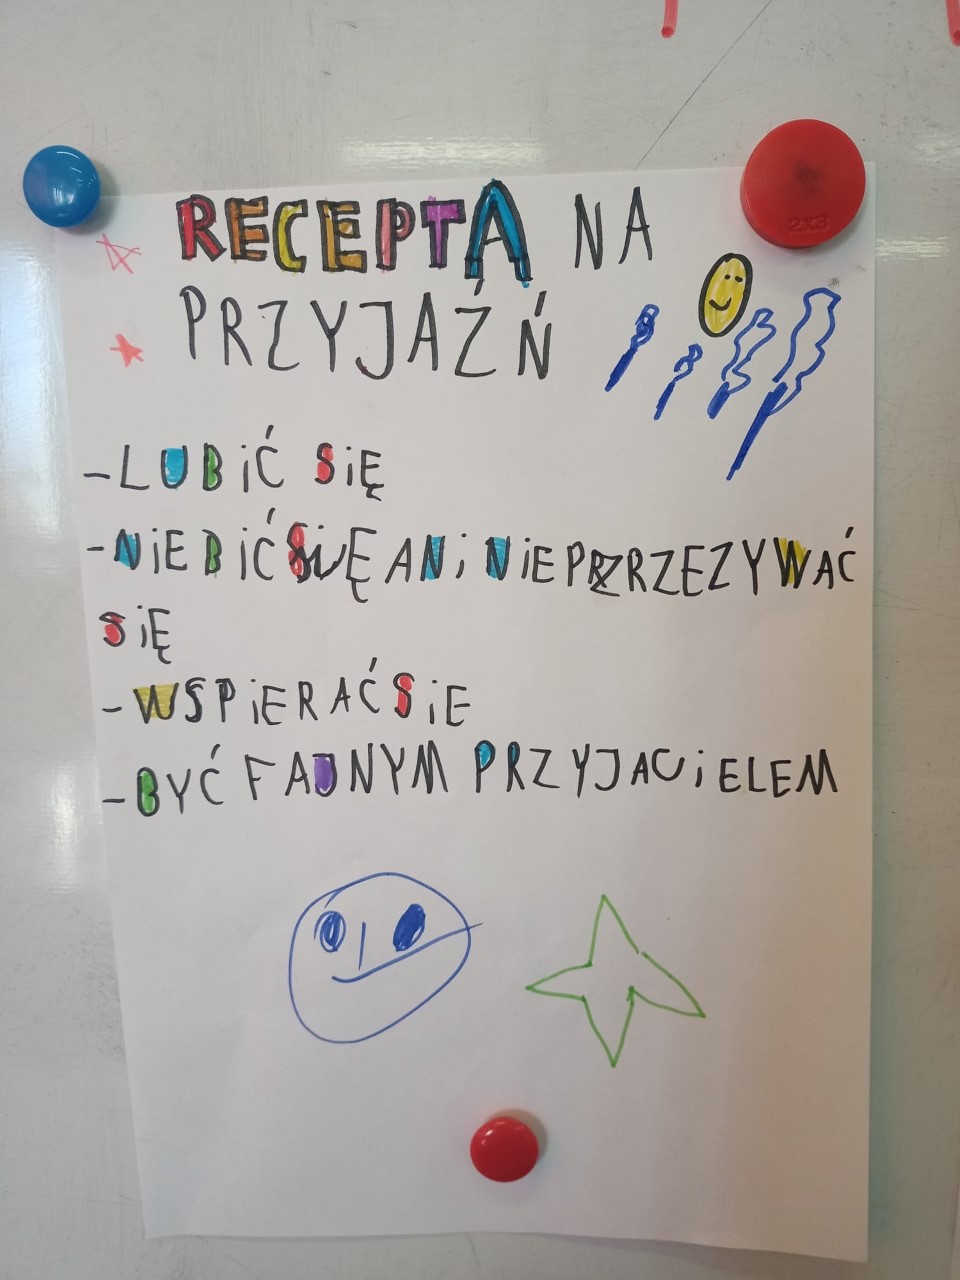 RECEPTA NA
PRZYJAŹŃ
-LUBiĆ SiĘ
-NiE BiĆ SiĘ ANi NiE PRZRZEZYWAĆ
SiĘ
-WSPiERAĆ SiE
-BYĆ FAJNYM PRZYJACiELEM
2X3